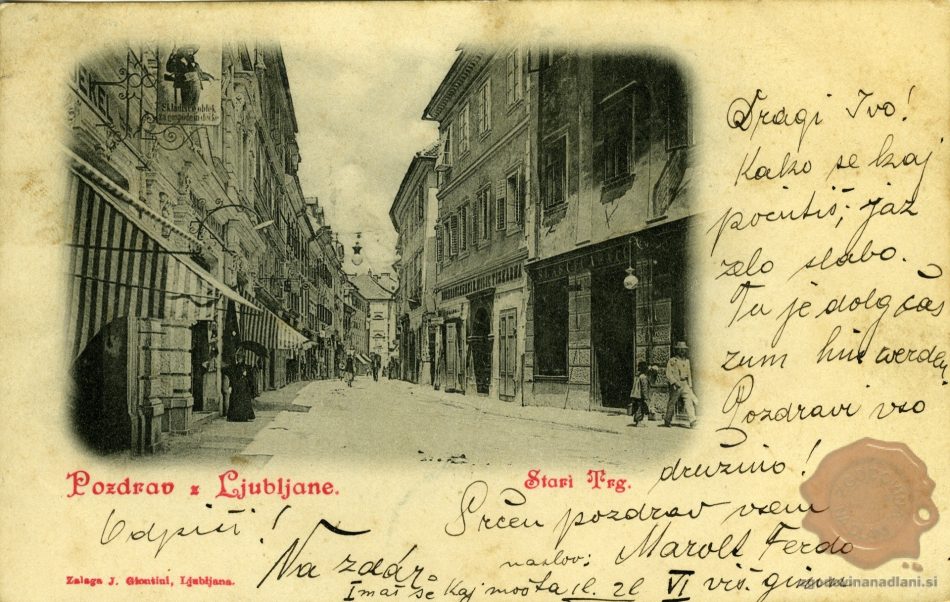 Skladišče oblek
za gospode in dečke
Dragi Ivo!
Kako se kaj
počutiš; jaz
zelo slabo.
Tu je dolgčas
zum hin werden
Pozdravi vso
družino!
Pozdrav z Ljubljane.
Stari Trg.
Srčen pozdrav vsem
Odpiši!
naslov: Marolt Ferdo
Na zdár
Imaš še kaj
VI viš. gimn
Zalaga J. Giontini, Ljubljana.
zgodovinanadlani.si